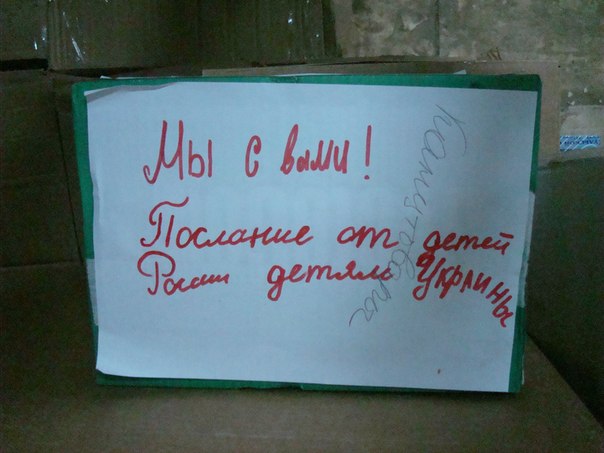 Мы с вами!
Послание от детей
России детям Украины
канцтовары